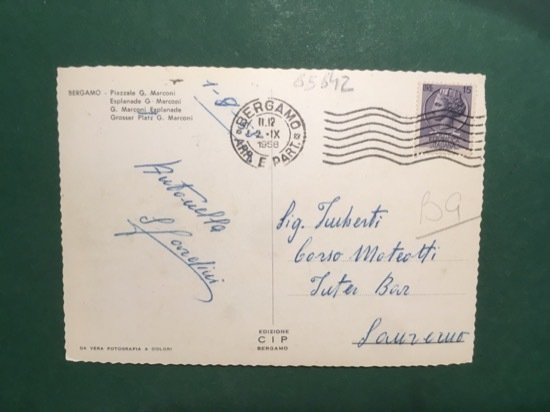 BERGAMO - Piazzale G. Marconi
Esplanade G. Marconi
G. Marconi Esplanade
Grosser Platz G. Marconi
1-8
65642
BERGAMO
11.12
2-IX
1958
ARR. E PART.
LIRE 15
Antonella
B9
Sig. Imberti
Corso Mateotti
Inter Bar
Sanremo
EDIZIONE
CIP
BERGAMO
DA VERA FOTOGRAFIA A COLORI